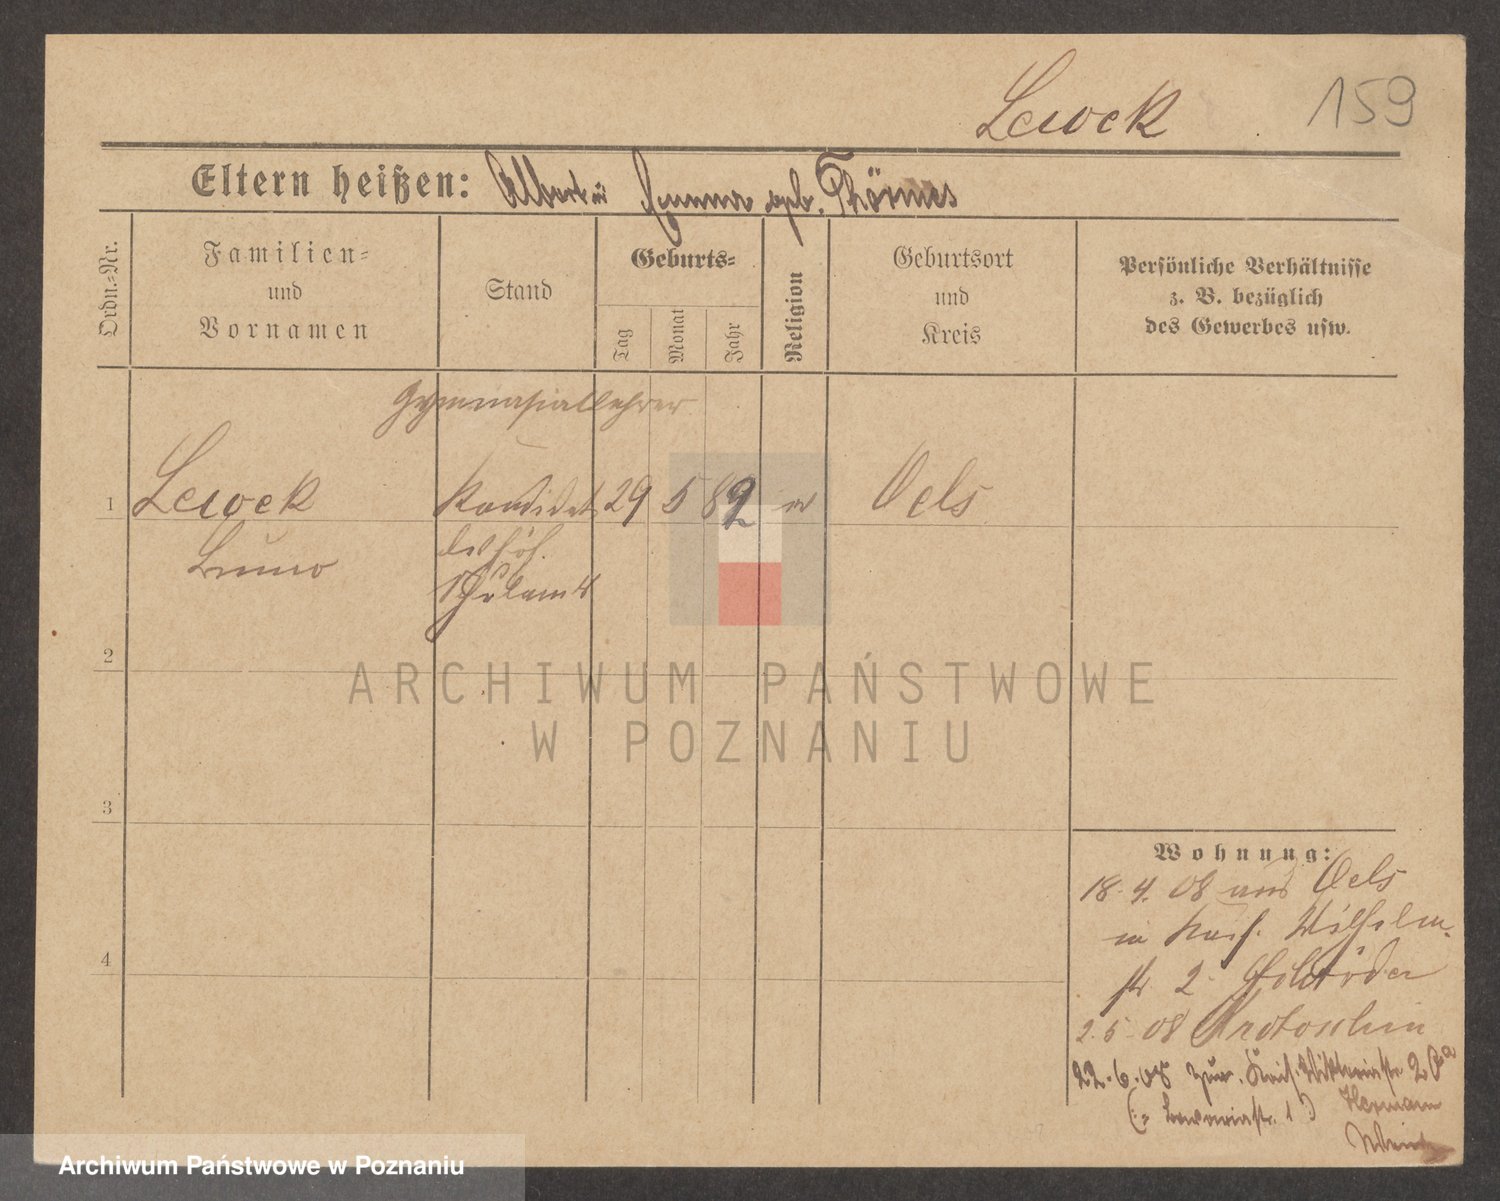 Lewek
159
Eltern heißen: Albert u Emma geb. Thörmes
Ordn.=Nr.
Familien=
und
Vornamen
Stand
Geburts=
Tag
Monat
Jahr
Religion
Geburtsort
und
Kreis
Persönliche Verhältnisse
z. B. bezüglich
des Gewerbes usw.
Gymnasiallehrer
1 Lewek Kandidat 29 5 82 ev Oels
Bruno des höh.
Schulamts
2
ARCHIWUM PAŃSTWOWE
W POZNANIU
3
Wohnung:
18. 4. 08 aus Oels
in Kais. Wilhelm
str 2.
4
2. 5. 08 Krotoschin
22. 6. 08 zur. Kais. Viktoriastr 20a
Hermann
Archiwum Państwowe w Poznaniu